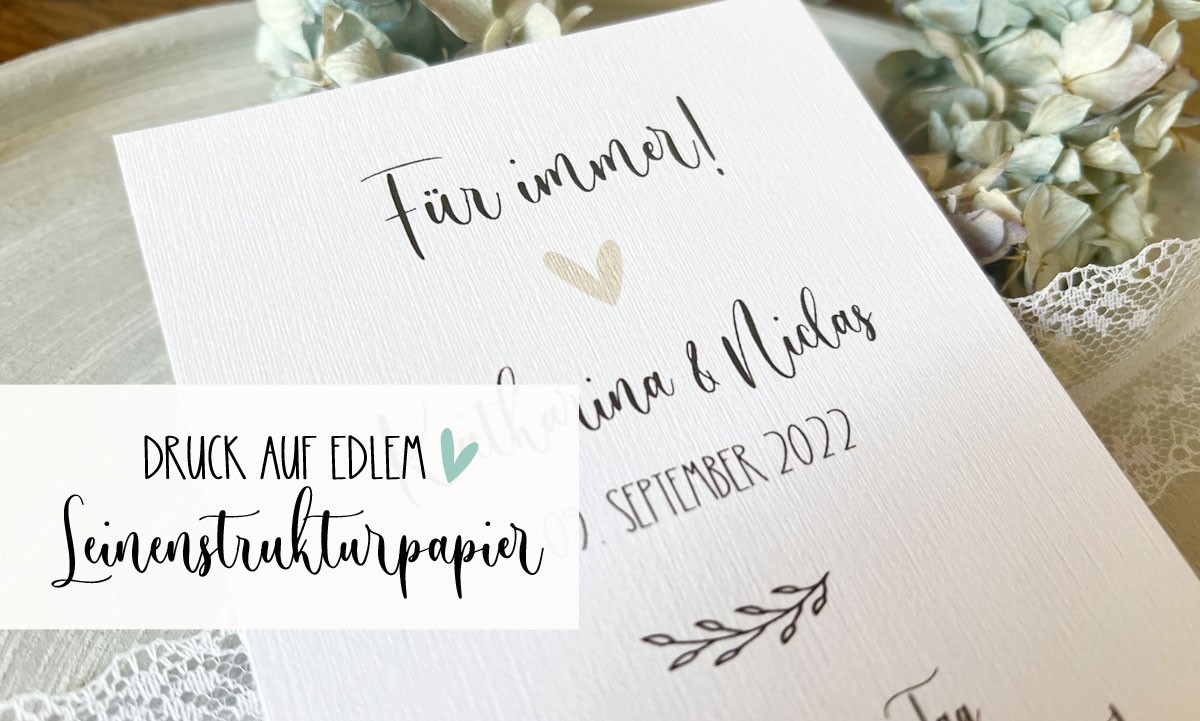 Für immer!
Katharina & Niclas
09. SEPTEMBER 2022
Tag
DRUCK AUF EDLEM
Leinenstrukturpapier